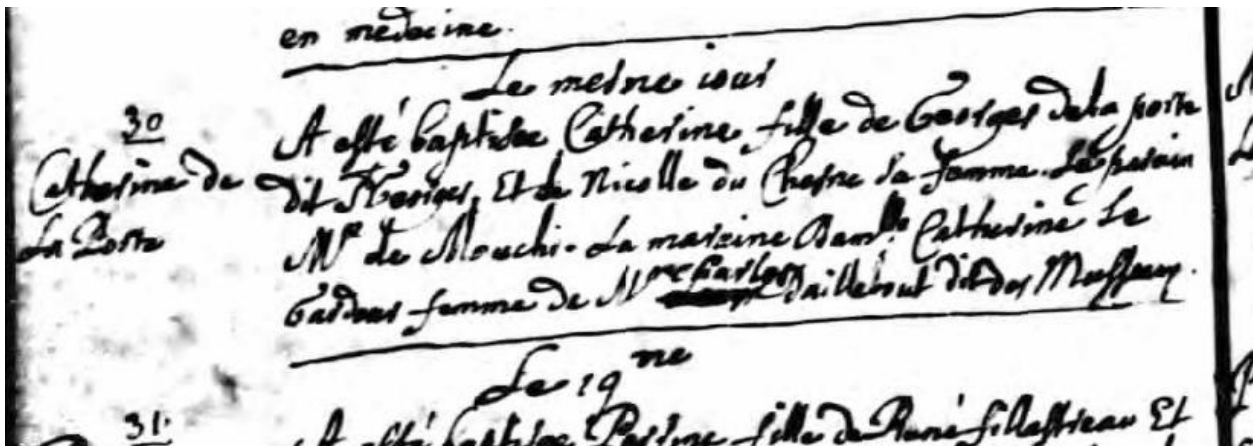 en medecine.
Le mesme iour
30
Catherine de
La Porte
A esté baptisée Catherine fille de Georges dela porte
dit St Georges, Et de Nicolle du Chesne sa femme. Le parain
Mr de Mouchi. La maraine Damlle Catherine Le
Gardeur femme de Mre Charles Dailleboust dit des Musseaux.
Le 19me
31.
A esté baptisée Perine fille de René fillastreau Et